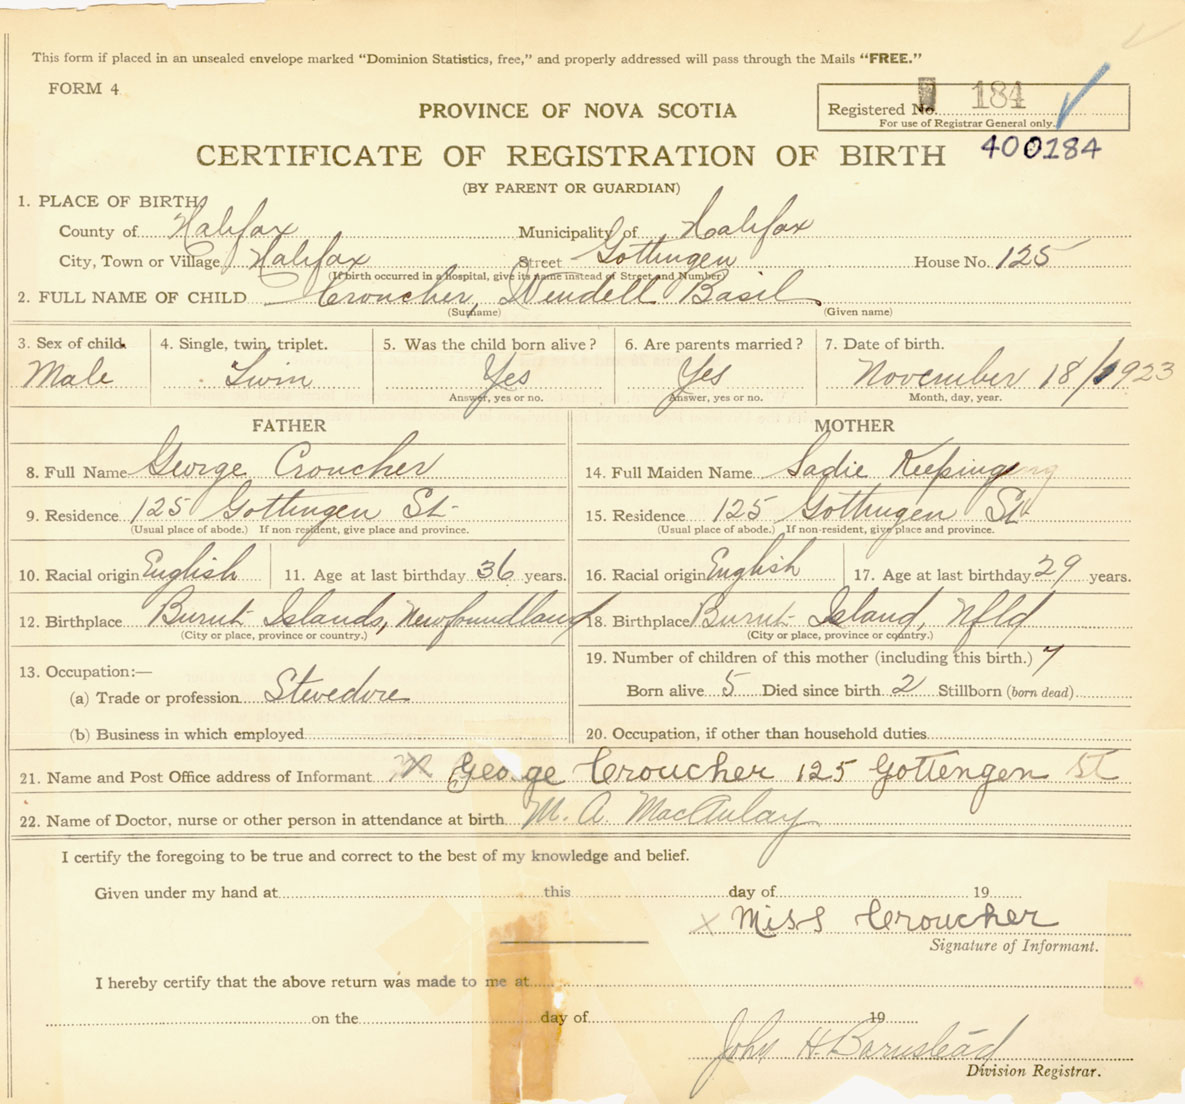 This form if placed in an unsealed envelope marked "Dominion Statistics, free," and properly addressed will pass through the Mails "FREE."
FORM 4
Registered No. 184
For use of Registrar General only.
PROVINCE OF NOVA SCOTIA
400184
CERTIFICATE OF REGISTRATION OF BIRTH
(BY PARENT OR GUARDIAN)
1. PLACE OF BIRTH
County of Halifax Municipality of Halifax
City, Town or Village Halifax Street Gottingen House No. 125
(If birth occurred in a hospital, give its name instead of Street and Number)
2. FULL NAME OF CHILD Croucher, Wendell Basil
(Surname) (Given name)
3. Sex of child. 4. Single, twin, triplet. 5. Was the child born alive? 6. Are parents married? 7. Date of birth.
Male Twin Yes Yes November 18/1923
Answer, yes or no. Answer, yes or no. Month, day, year.
FATHER MOTHER
8. Full Name George Croucher 14. Full Maiden Name Sadie Keeping
9. Residence 125 Gottingen St. 15. Residence 125 Gottingen St.
(Usual place of abode.) If non resident, give place and province. (Usual place of abode.) If non-resident, give place and province.
10. Racial origin English 11. Age at last birthday 36 years. 16. Racial origin English 17. Age at last birthday 29 years.
12. Birthplace Burnt Islands, Newfoundland 18. Birthplace Burnt Island, Nfld
(City or place, province or country.) (City or place, province or country.)
13. Occupation:— 19. Number of children of this mother (including this birth.) 7
(a) Trade or profession Stevedore Born alive 5 Died since birth 2 Stillborn (born dead)
(b) Business in which employed 20. Occupation, if other than household duties
21. Name and Post Office address of Informant X George Croucher 125 Gottengen St
22. Name of Doctor, nurse or other person in attendance at birth M. A. MacAulay
I certify the foregoing to be true and correct to the best of my knowledge and belief.
Given under my hand at this day of 19
X Miss Croucher
Signature of Informant.
I hereby certify that the above return was made to me at
on the day of 19
John H. Barnstead
Division Registrar.